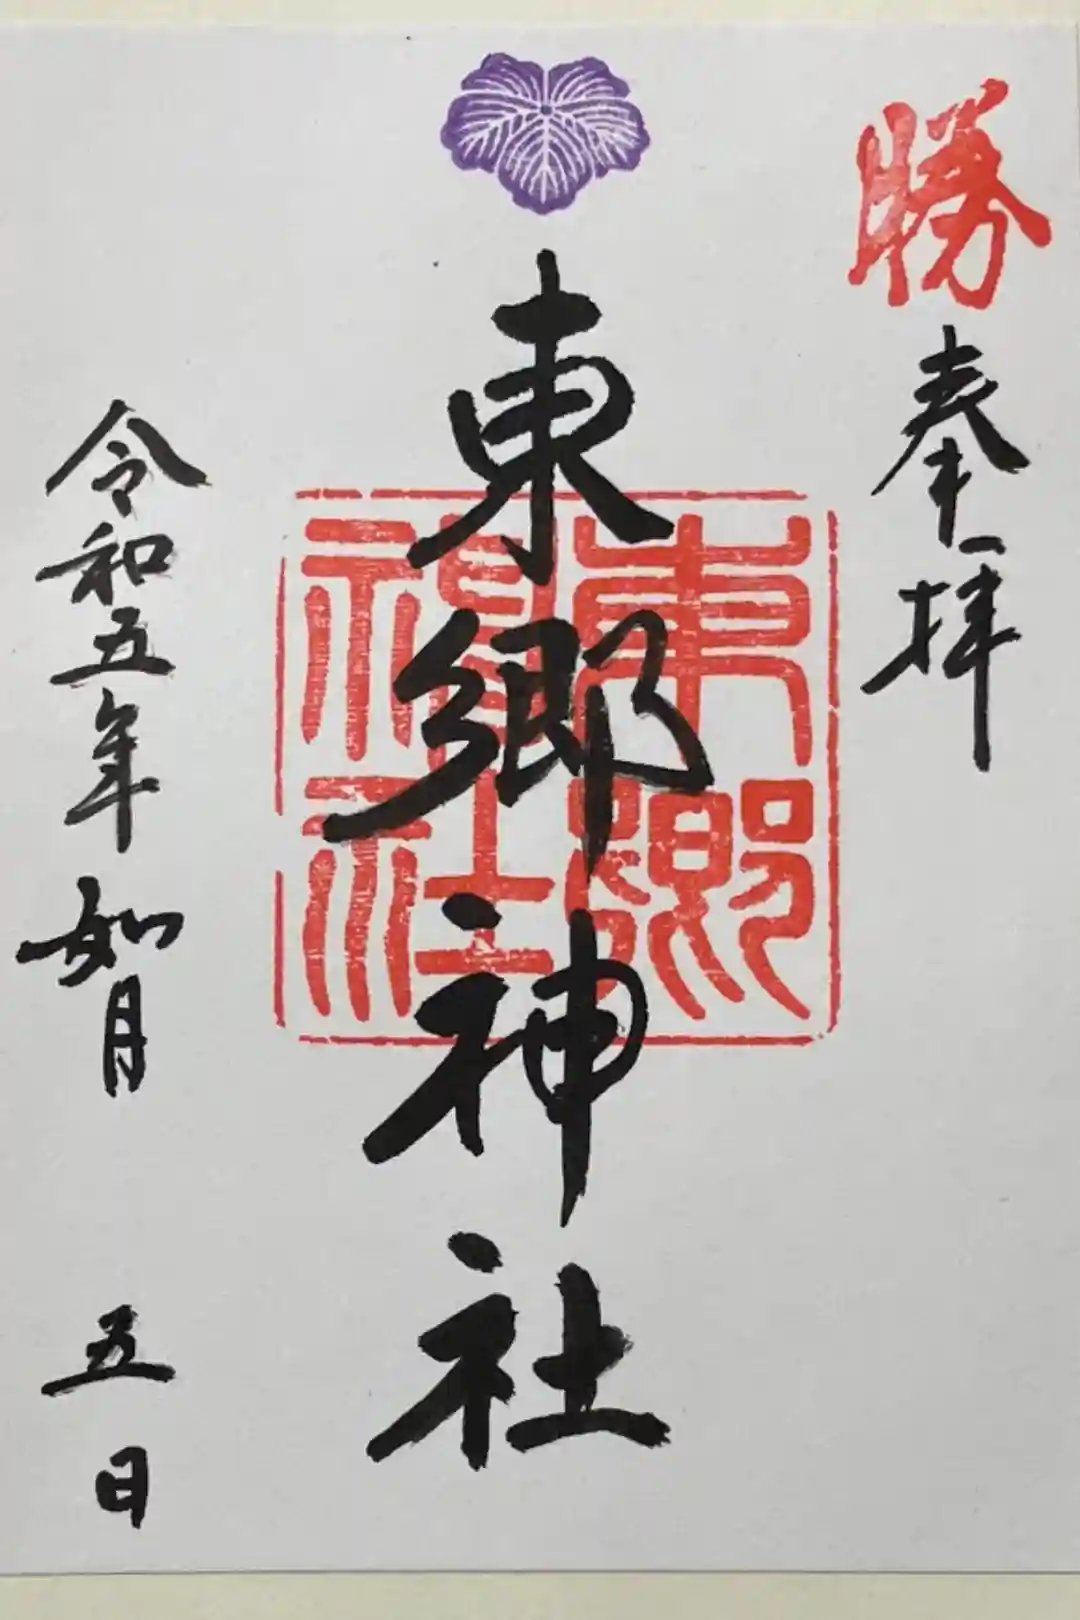 勝
奉拝
東郷神社
東郷神社
令和五年如月五日